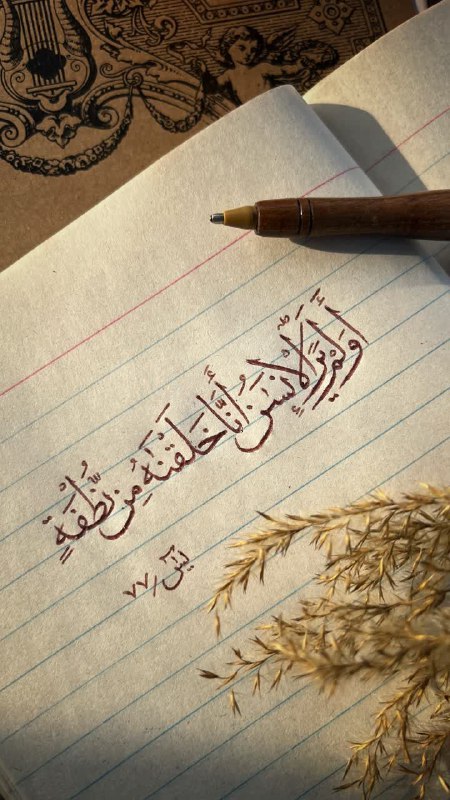 أَوَلَمْ يَرَ الْإِنسَٰنُ أَنَّا خَلَقْنَٰهُ مِن نُّطْفَةٍ
يٰسٓ / ٧٧